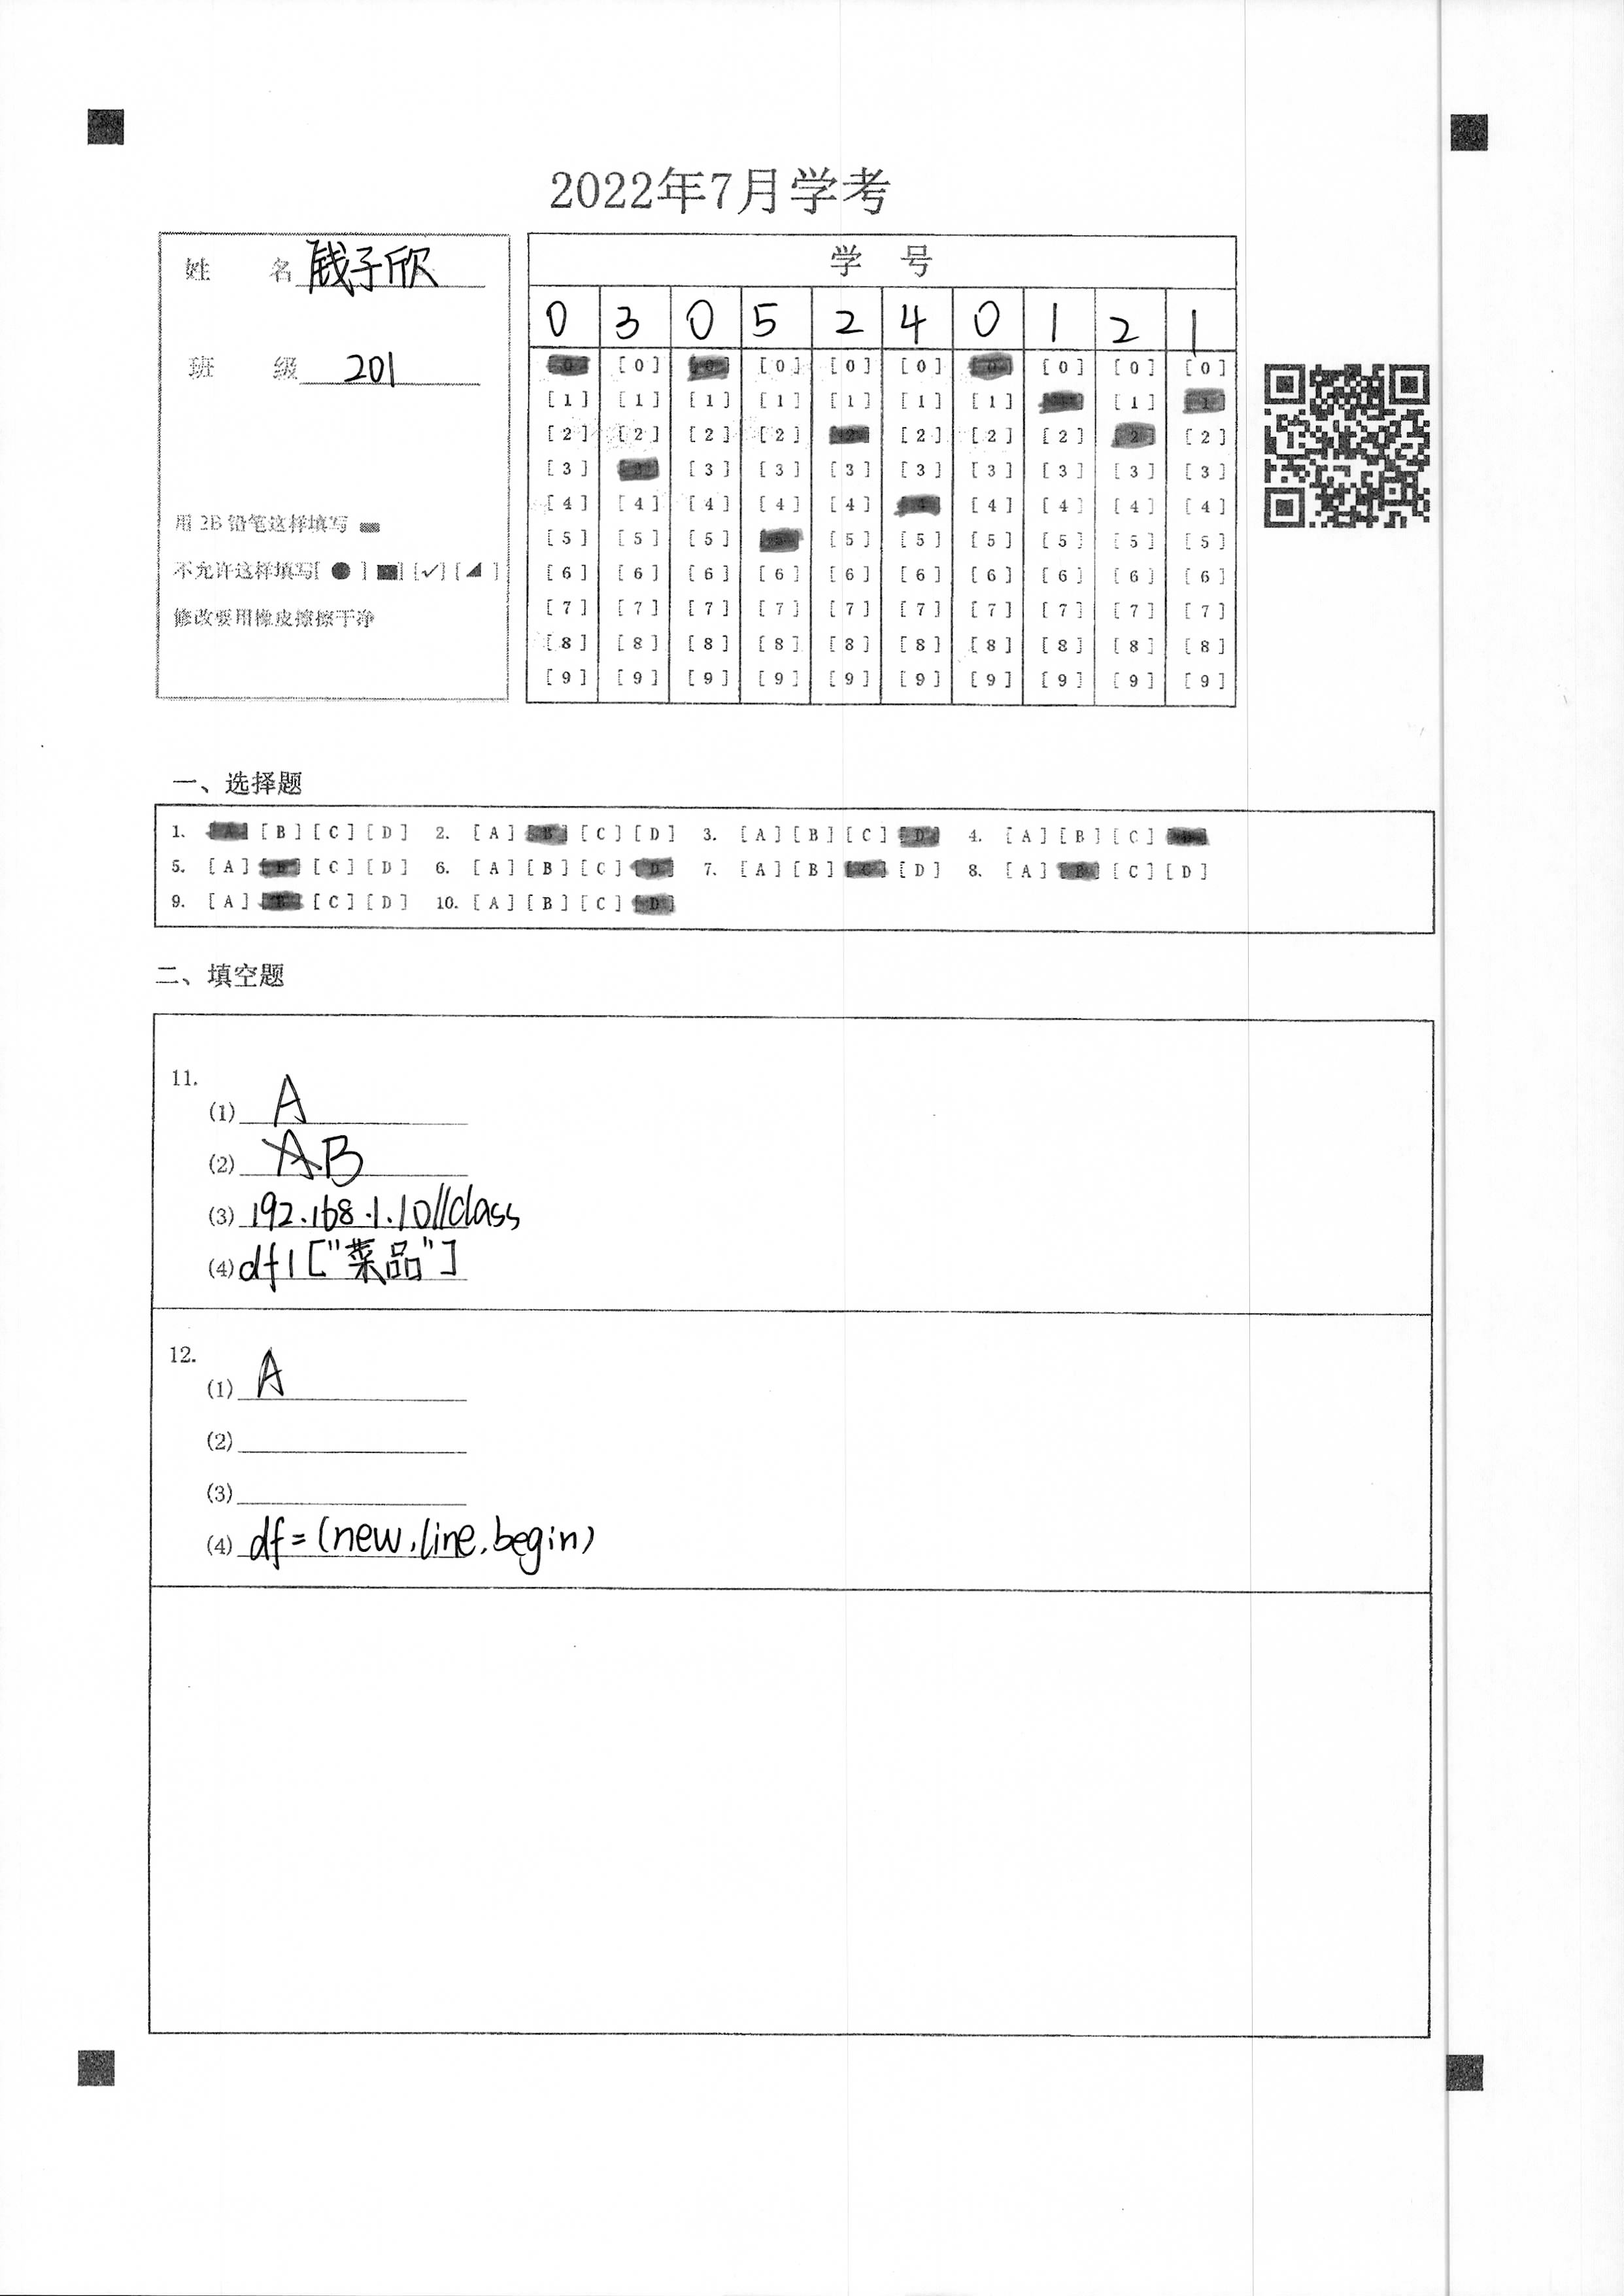 2022年7月学考
姓 名 钱子欣
班 级 201
用 2B 铅笔这样填写
不允许这样填写[ ● ] [■] [✓] [◢ ]
修改要用橡皮擦擦干净
学 号
0 3 0 5 2 4 0 1 2 1
[0] [0] [0] [0] [0] [0] [0] [0] [0] [0]
[1] [1] [1] [1] [1] [1] [1] [1] [1] [1]
[2] [2] [2] [2] [2] [2] [2] [2] [2] [2]
[3] [3] [3] [3] [3] [3] [3] [3] [3] [3]
[4] [4] [4] [4] [4] [4] [4] [4] [4] [4]
[5] [5] [5] [5] [5] [5] [5] [5] [5] [5]
[6] [6] [6] [6] [6] [6] [6] [6] [6] [6]
[7] [7] [7] [7] [7] [7] [7] [7] [7] [7]
[8] [8] [8] [8] [8] [8] [8] [8] [8] [8]
[9] [9] [9] [9] [9] [9] [9] [9] [9] [9]
一、选择题
1. [A] [B] [C] [D] 2. [A] [B] [C] [D] 3. [A] [B] [C] [D] 4. [A] [B] [C] [D]
5. [A] [B] [C] [D] 6. [A] [B] [C] [D] 7. [A] [B] [C] [D] 8. [A] [B] [C] [D]
9. [A] [B] [C] [D] 10. [A] [B] [C] [D]
二、填空题
11.
(1) A
(2) A B
(3) 192.168.1.10//class
(4) df1["菜品"]
12.
(1) A
(2)
(3)
(4) df=(new,line,begin)